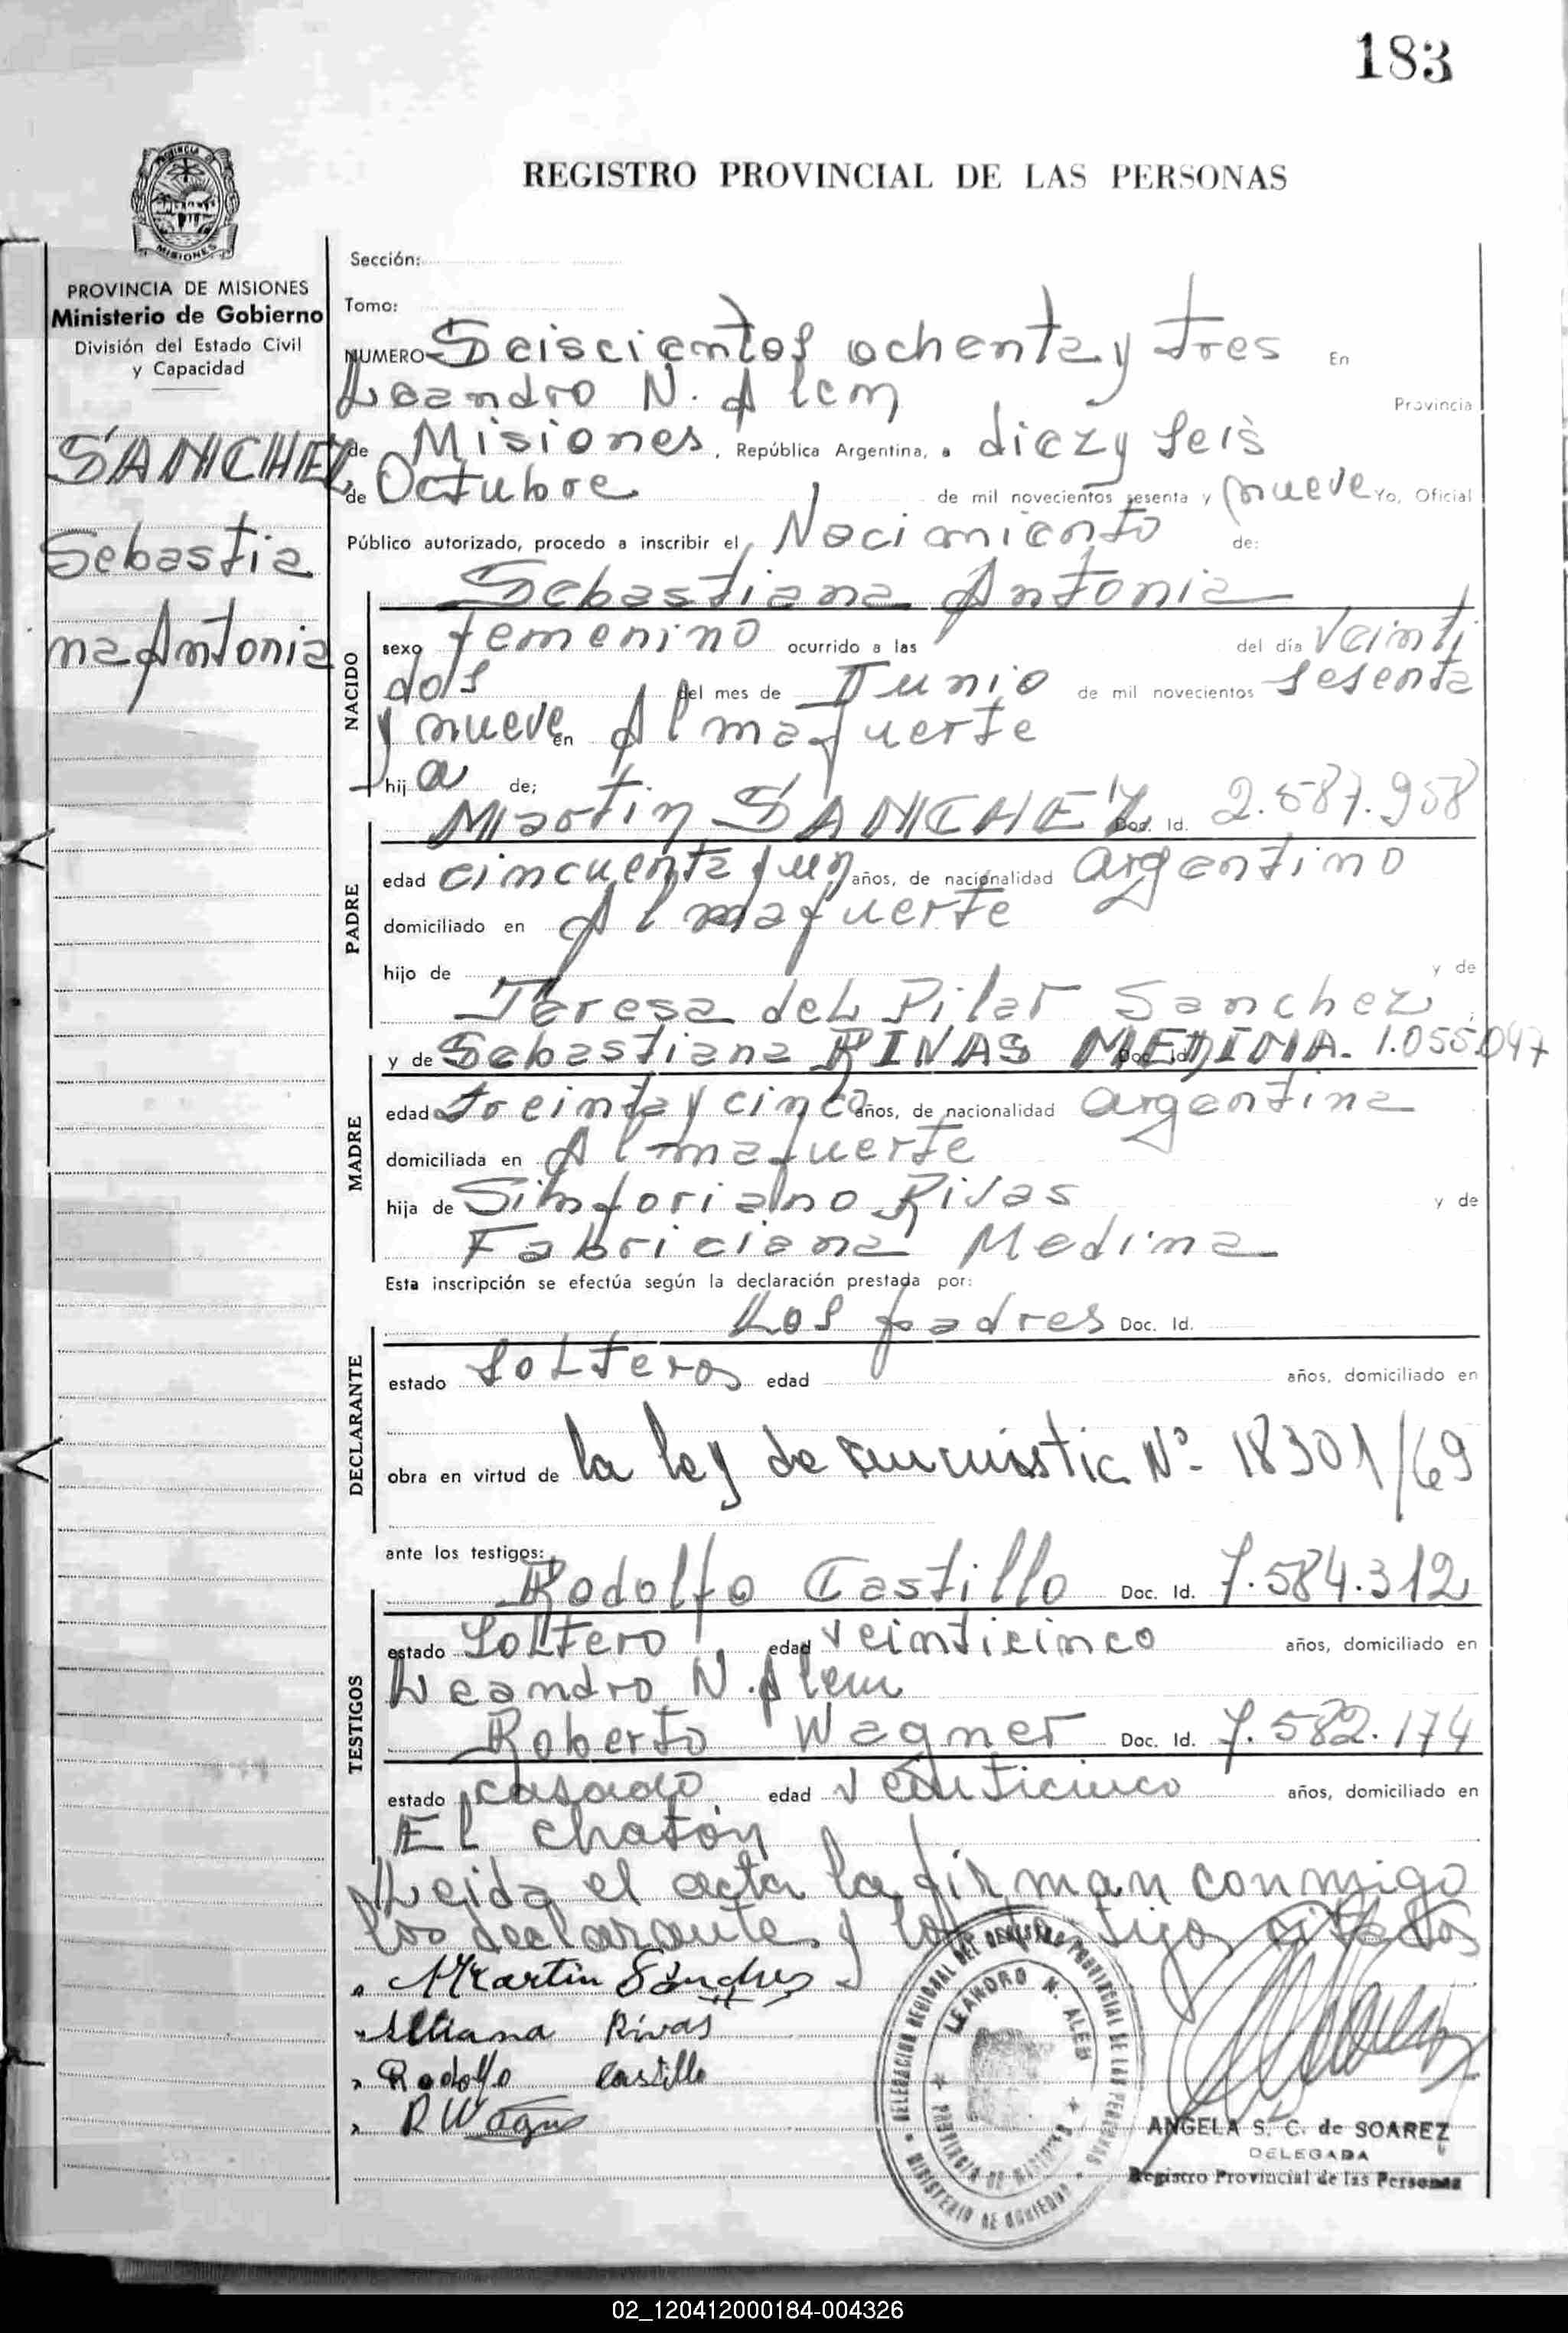 183
REGISTRO PROVINCIAL DE LAS PERSONAS
PROVINCIA DE MISIONES
Ministerio de Gobierno
División del Estado Civil
y Capacidad
SANCHEZ
Sebastia
na Antonia
Sección:
Tomo:
NUMERO Seiscientos ochenta y tres En
Leandro N. Alem Provincia
de Misiones, República Argentina, a diez y seis
de Octubre de mil novecientos sesenta y nueve Yo, Oficial
Público autorizado, procedo a inscribir el Nacimiento de:
NACIDO
Sebastiana Antonia
sexo femenino ocurrido a las del día veinti
dos del mes de Junio de mil novecientos sesenta
y nueve en Almafuerte
hija de;
PADRE
Martin SANCHEZ Doc. Id. 2.587.958
edad cincuenta y un años, de nacionalidad argentino
domiciliado en Almafuerte
hijo de y de
Teresa del Pilar Sanchez
MADRE
y de Sebastiana RIVAS MEDINA. Doc. Id. 1.055.047
edad treinta y cinco años, de nacionalidad argentina
domiciliada en Almafuerte
hija de Simforiano Rivas y de
Fabriciana Medina
Esta inscripción se efectúa según la declaración prestada por:
DECLARANTE
Los padres Doc. Id.
estado solteros edad años, domiciliado en
obra en virtud de la ley de Nº 18301/69
ante los testigos:
TESTIGOS
Rodolfo Castillo Doc. Id. 7.584.312
estado soltero edad veinticinco años, domiciliado en
Leandro N. Alem
Roberto Wagner Doc. Id. 7.582.174
estado casado edad veinticinco años, domiciliado en
El chatón
Leida el acta la firman conmigo
los declarantes y los testigos citados
Martin Sánchez
Rivas
Rodolfo Castillo
R Wagner
DELEGACION REGIONAL DEL REGISTRO PROVINCIAL DE LAS PERSONAS
MINISTERIO DE GOBIERNO
LEANDRO N. ALEM
PROVINCIA DE MISIONES
ANGELA S. C. de SOAREZ
DELEGADA
Registro Provincial de las Personas
02_120412000184-004326